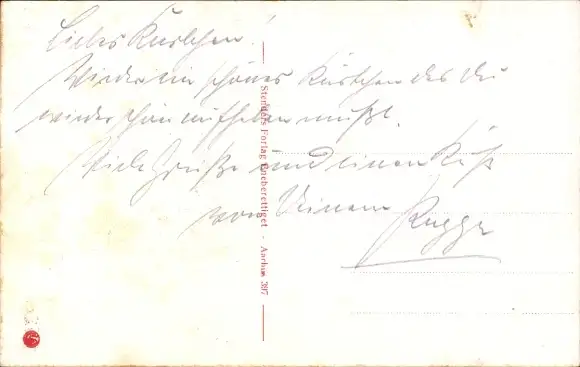 Liebes Kurtchen!
Wieder ein schönes Kärtchen das du
wieder schön aufheben mußt.
Viele Grüße und einen Kuß
von Deinem
Stenders Forlag Eneberettiget - Aarhus 397